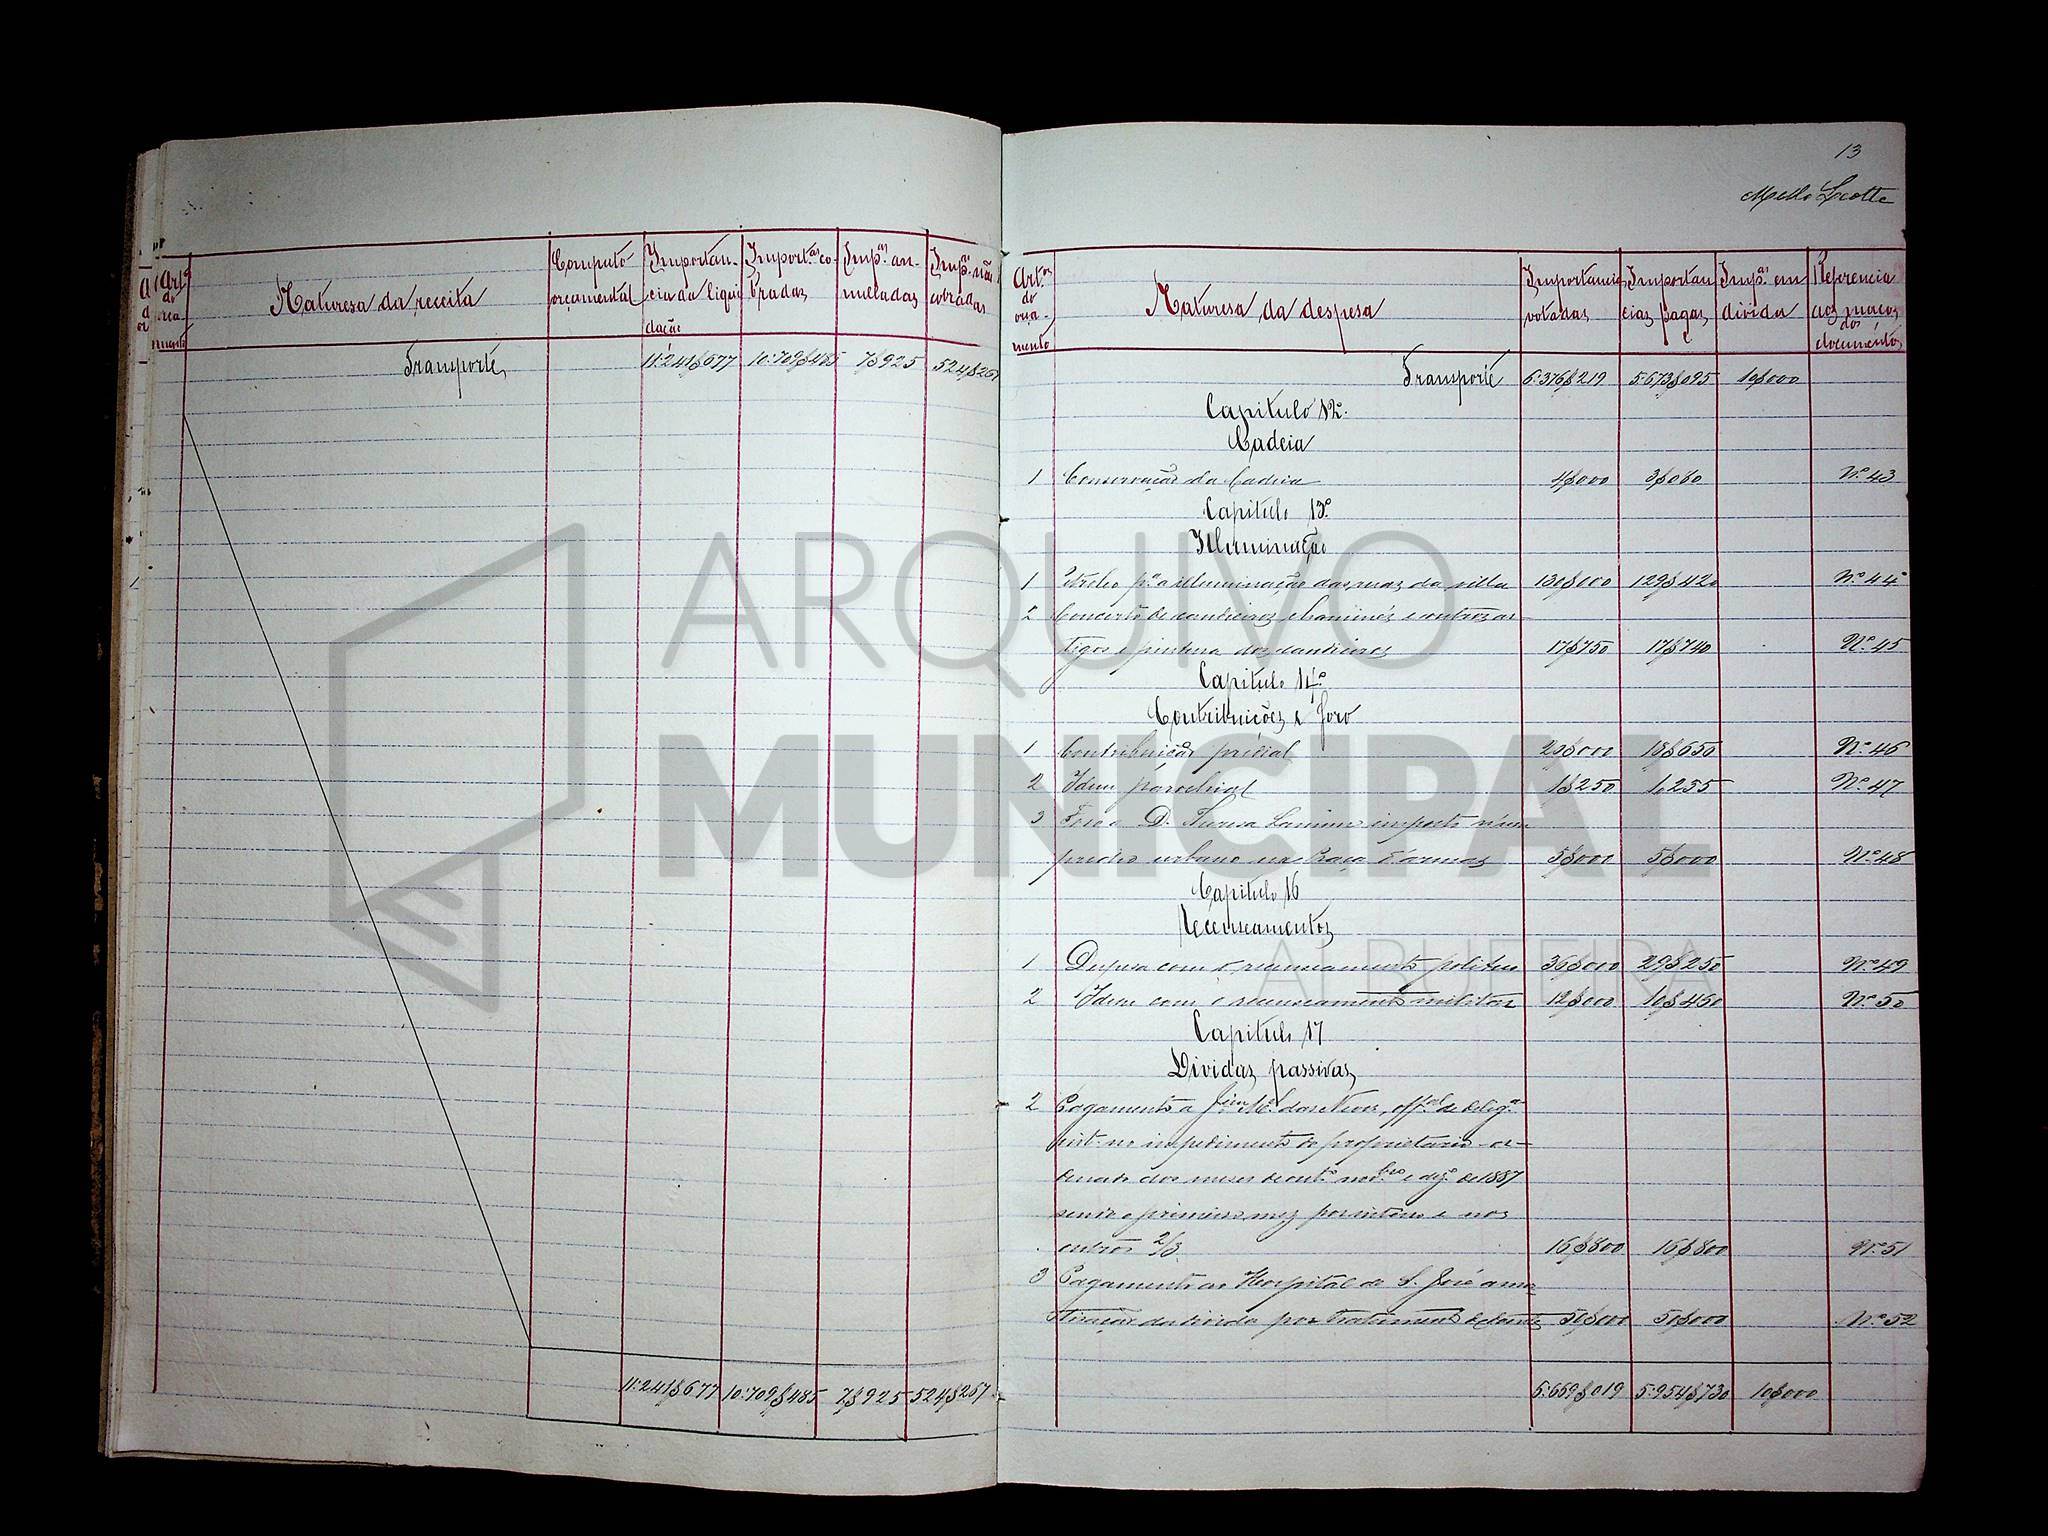 Art.º do orça-mento
Natureza da receita
Computo orçamental
Importan-cia da liqui-dação
Import.as co-bradas
Imp.as an-nulladas
Imp.as não cobradas
Transporte 11:241$677 10:709$485 7$925 524$267
11:241$677 10:709$485 7$925 524$267
13
Mello Leotte
Art.os do orça-mento
Natureza da despesa
Importancias votadas
Importan-cias pagas
Imp.as em divida
Referencia aos maços dos documentos
Transporte 6:376$219 5:673$095 10$000
Capitulo 12º
Cadeia
1 Conservação da Cadeia 4$000 3$060 Nº 43
Capitulo 13º
Illuminação
1 Petroleo p.a a illuminação das ruas da villa 130$000 129$420 Nº 44
2 Concerto de candieiros chaminés e outros ar-
tigos e pintura dos candieiros 17$750 17$740 Nº 45
Capitulo 14º
Contribuições e foro
1 Contribuição predial 20$000 18$650 Nº 46
2 Idem parochial 1$250 1,255 Nº 47
3 Foro a D. Imposto n'um
predio urbano na Praça d'armas 5$000 5$000 Nº 48
Capitulo 16
Recenseamentos
1 Despesa com o recenseamento politico 36$000 29$250 Nº 49
2 Idem com o recenseamento militar 12$000 10$460 Nº 50
Capitulo 17
Dividas passivas
2 Pagamento a M.el das Neves, off.al de delig.as
no impedimento do proprietario - or-
denado dos meses de out.º nov.bro e dez.º de 1887
sendo o primeiro mez por inteiro e nos
outros 2/3 16$800 16$800 Nº 51
3 Pagamento ao Hospital de S. José amor-
tisação da divida por tratamento de doentes 50$000 50$000 Nº 52
6:669$019 5:954$730 10$000
ARQUIVO
MUNICIPAL
ALBUFEIRA